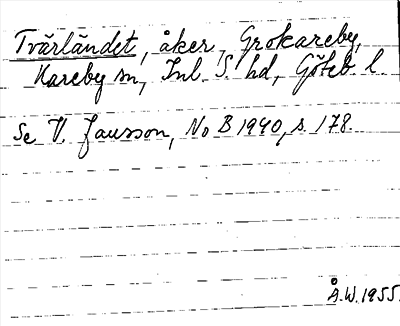 Tvärländet, åker, Grokareby,
Kareby sn, Inl. S. hd, Göteb. l.
Se V. Jansson, No B 1940, s. 178.
Å.W. 1955.